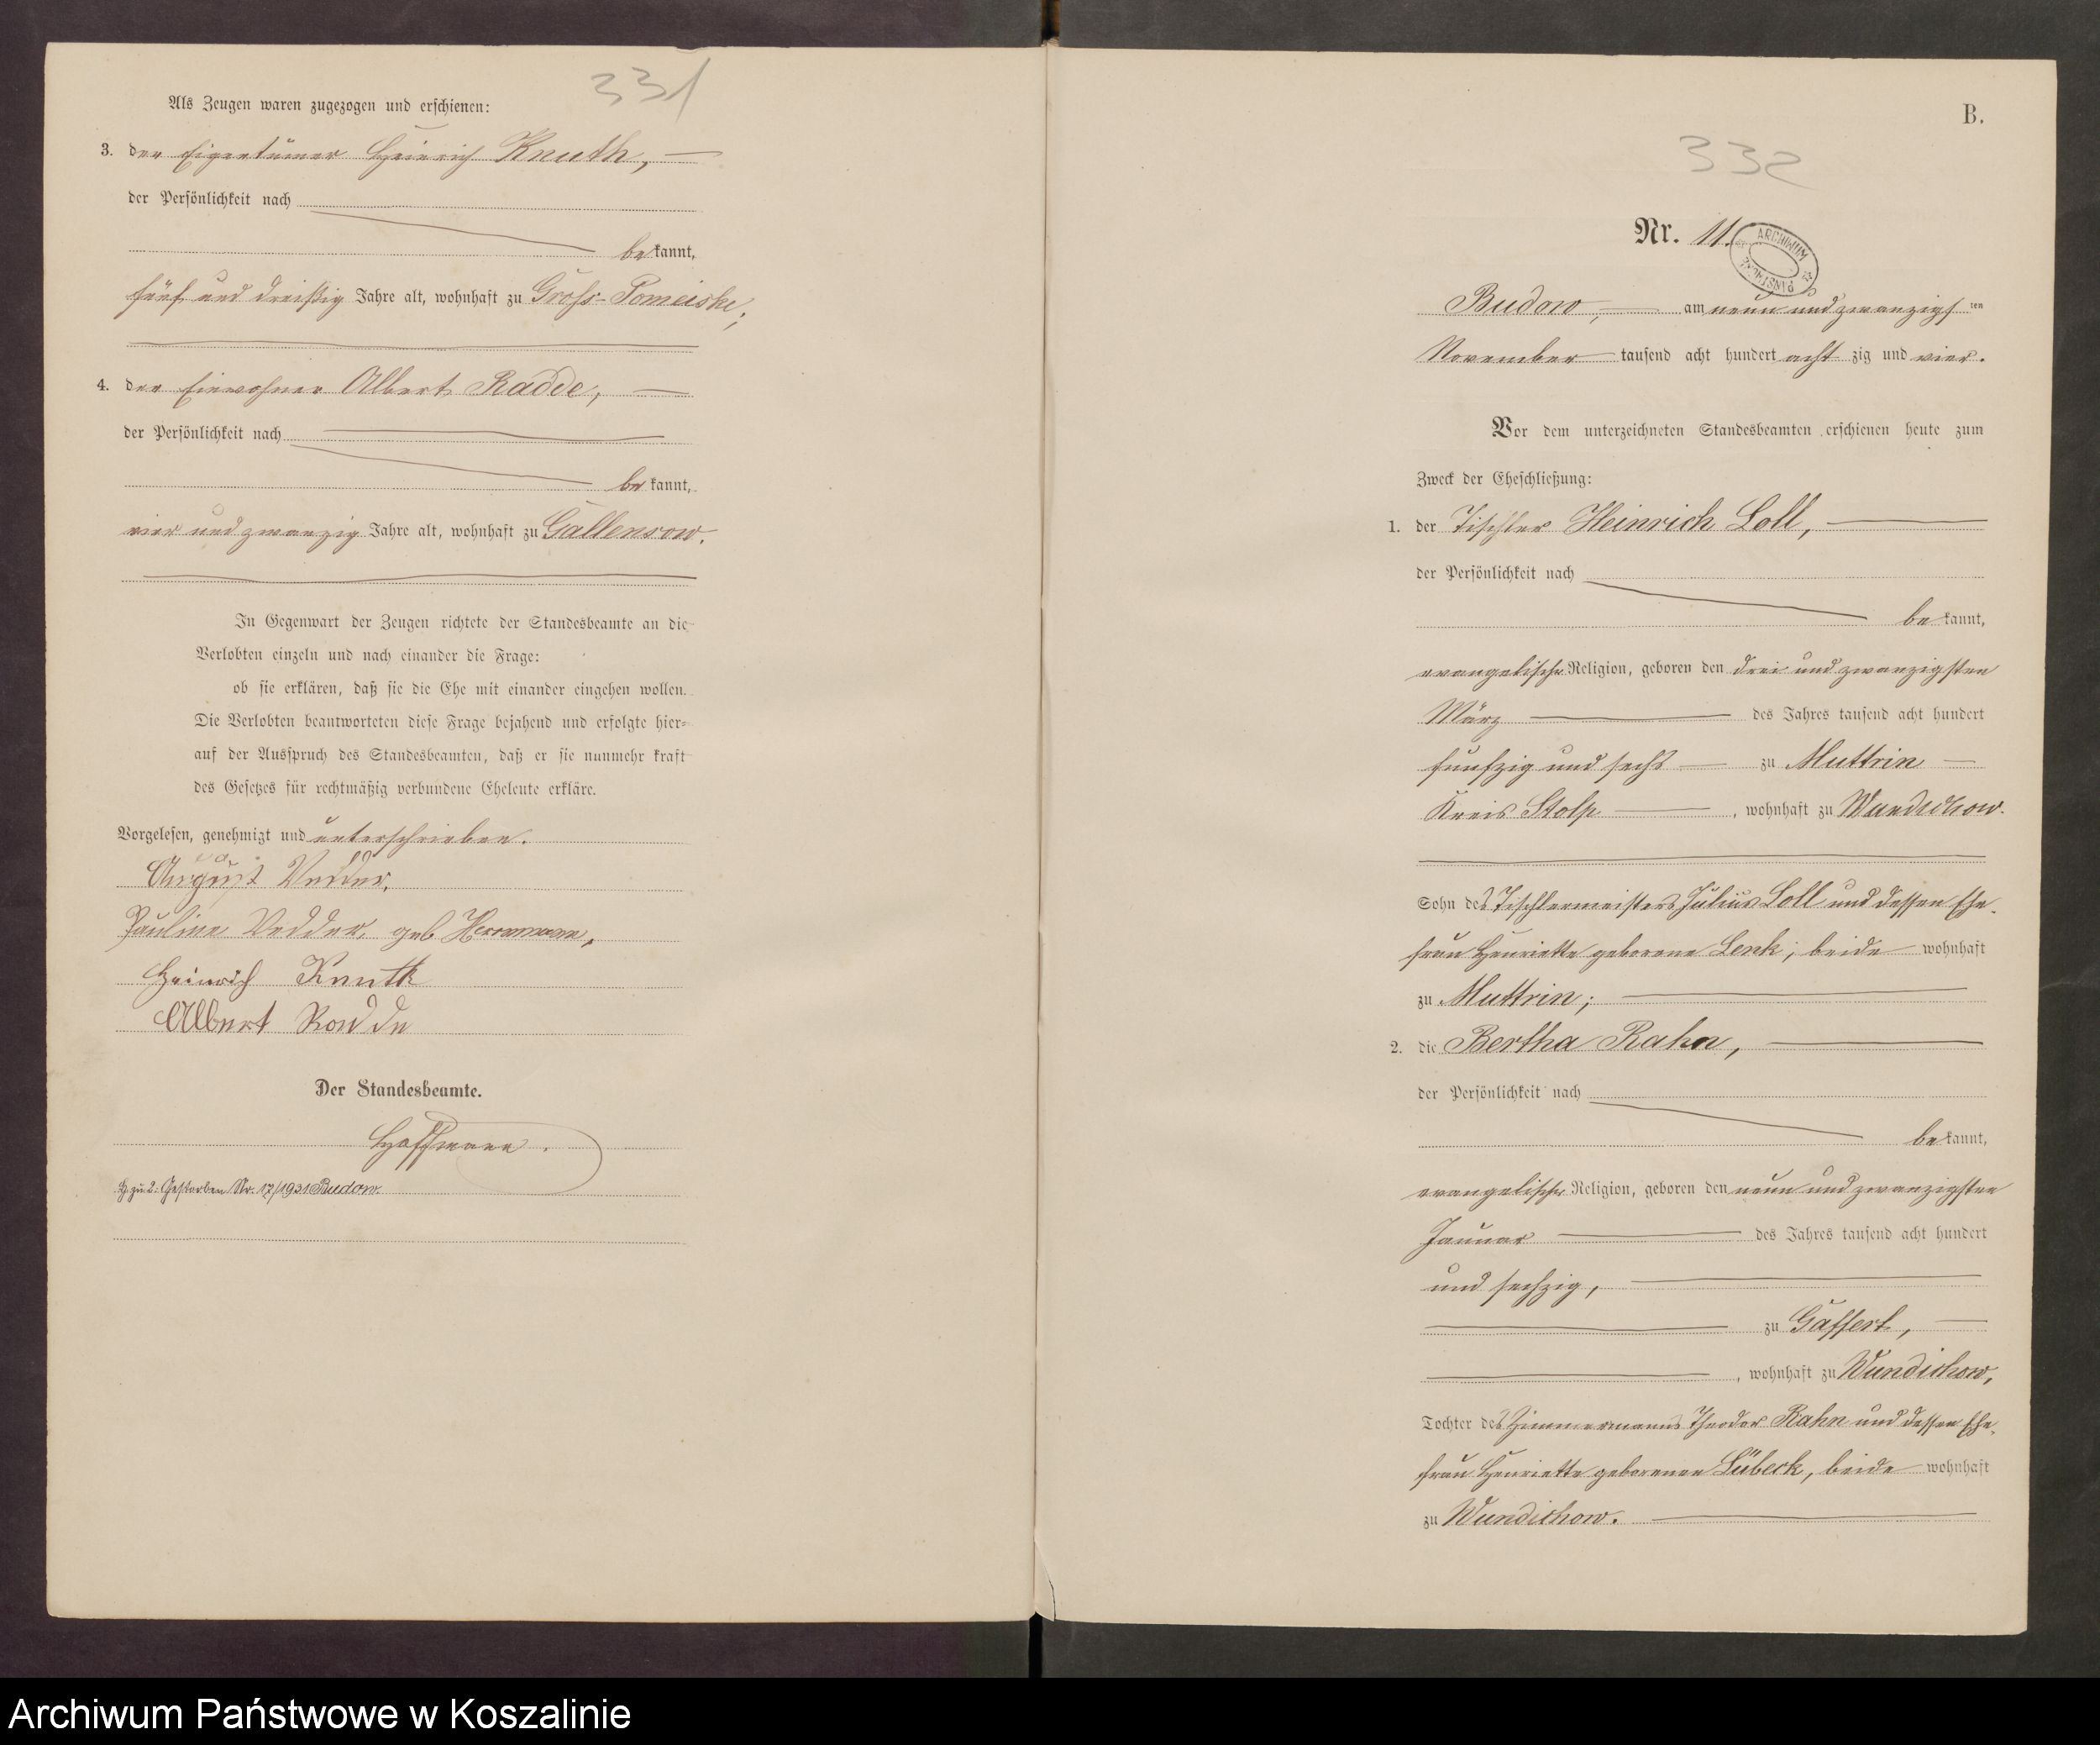 331
Als Zeugen waren zugezogen und erschienen:
3. der Eigentümer Heinrich Knuth,
der Persönlichkeit nach
bekannt,
fünf und dreißig Jahre alt, wohnhaft zu Groß-Pomeiske;
4. der Einwohner Albert Radde,
der Persönlichkeit nach
bekannt,
vier und zwanzig Jahre alt, wohnhaft zu Gallensow.
In Gegenwart der Zeugen richtete der Standesbeamte an die
Verlobten einzeln und nach einander die Frage:
ob sie erklären, daß sie die Ehe mit einander eingehen wollen.
Die Verlobten beantworteten diese Frage bejahend und erfolgte hier-
auf der Ausspruch des Standesbeamten, daß er sie nunmehr kraft
des Gesetzes für rechtmäßig verbundene Eheleute erkläre.
Vorgelesen, genehmigt und unterschrieben.
August Vedder.
Pauline Vedder, geb Herrmann,
Heinrich Knuth
Albert Radde
Der Standesbeamte.
Hoffmann.
H. zu 2: Gestorben Nr. 17/1931 Budow.
B.
332
Nr. 11.
ARCHIWUM PAŃSTW
Budow, am neun und zwanzigsten
November tausend acht hundert achtzig und vier.
Vor dem unterzeichneten Standesbeamten erschienen heute zum
Zweck der Eheschließung:
1. der Tischler Heinrich Loll,
der Persönlichkeit nach
bekannt,
evangelischer Religion, geboren den drei und zwanzigsten
März des Jahres tausend acht hundert
funfzig und sechs zu Muttrin
Kreis Stolp, wohnhaft zu Wundichow.
Sohn des Tischlermeisters Julius Loll und dessen Ehe-
frau Henriette geborene Lenk, beide wohnhaft
zu Muttrin;
2. die Bertha Rahn,
der Persönlichkeit nach
bekannt,
evangelischer Religion, geboren den neun und zwanzigsten
Januar des Jahres tausend acht hundert
und sechzig,
zu Gaffert,
, wohnhaft zu Wundichow,
Tochter des Zimmermanns Theodor Rahn und dessen Ehe-
frau Henriette geborenen Lübeck, beide wohnhaft
zu Wundichow.
Archiwum Państwowe w Koszalinie